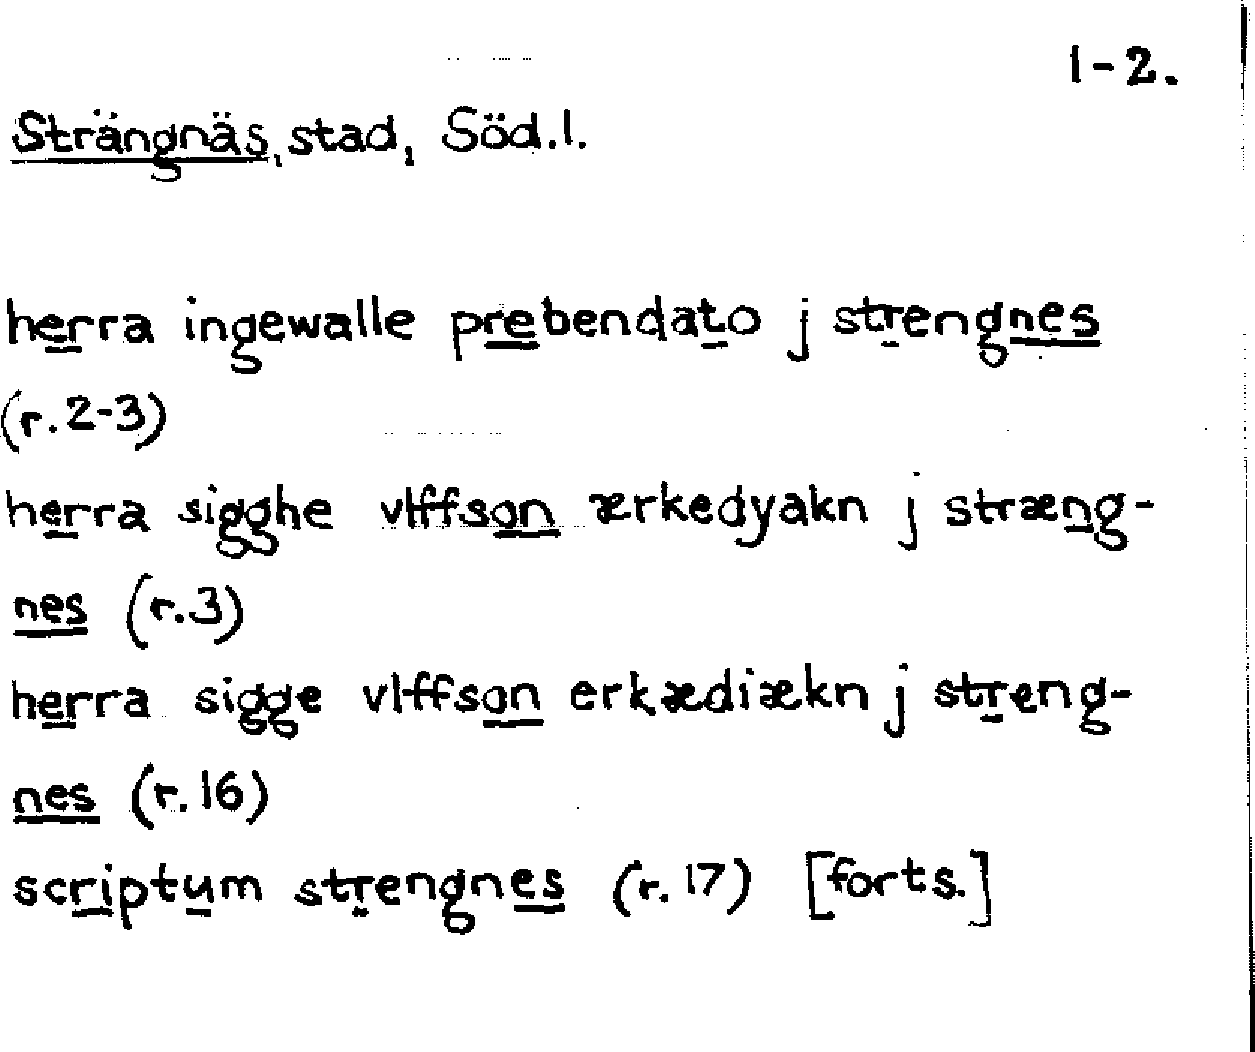 1-2.
Strängnäs, stad, Söd.l.
herra ingewalle prebendato j strengnes
(r.2-3)
herra sigghe vlffson ærkedyakn j stræng-
nes (r.3)
herra sigge vlffson erkædiækn j streng-
nes (r.16)
scriptum strengnes (r.17) [forts.]